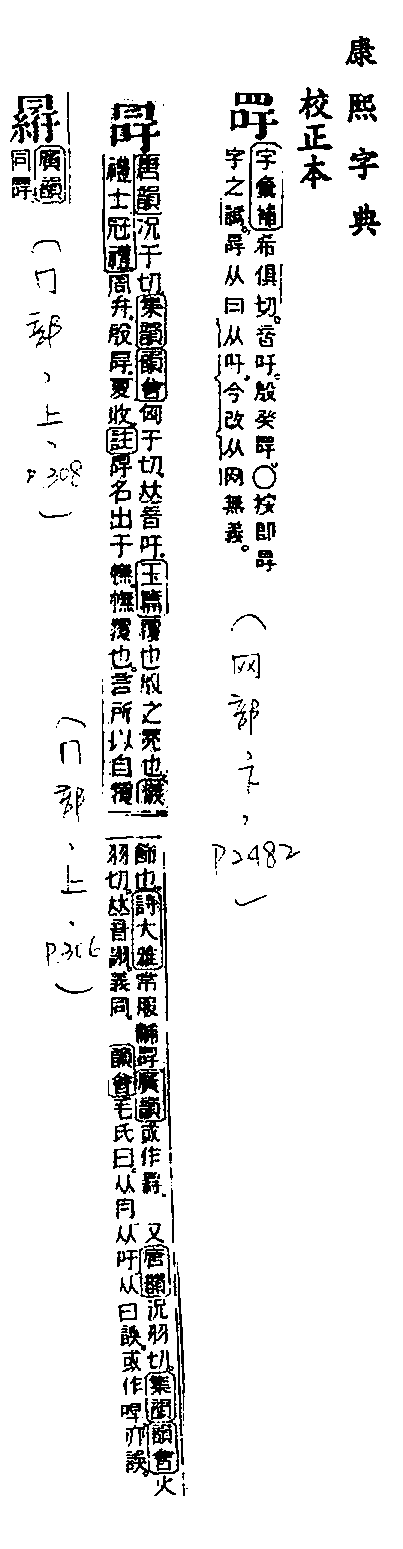 康熙字典
校正本
字彙補希俱切音吁殷癸冔〇按即冔
字之譌冔从冃从吁今改从网無義
(网部，六，P2482)
冔
唐韻況于切集韻韻會匈于切𠀤音吁玉篇覆也殷之冕也儀
禮士冠禮周弁殷冔夏收註冔名出于幠幠覆也言所以自覆
飾也詩大雅常服黼冔廣韻或作 又唐韻況羽切集韻韻會火
羽切𠀤音詡義同 韻會毛氏曰从冃从吁从曰誤或作 亦誤
(冂部、上、P.306)
廣韻
同冔
(冂部、上、P.308)